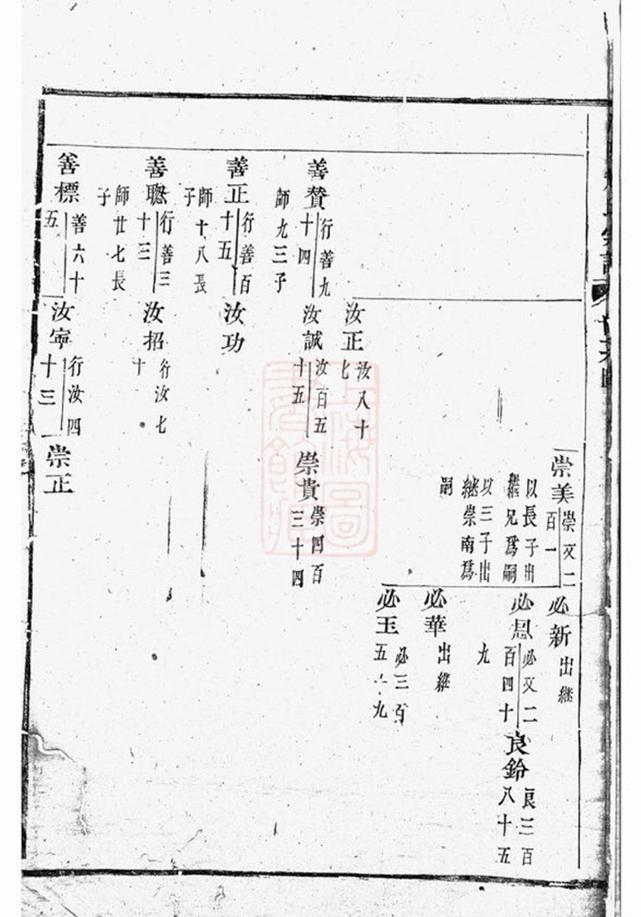 崇美
崇文二
百一
以長子出
繼兄爲嗣
以三子出
繼崇南爲
嗣
必新
出繼
必恩
必文二
百四十
九
良鈴
良三百
八十五
必華
出繼
必玉
必三百
五十九
汝正
汝八十
七
善贊
行善九
十四
師九三子
汝誠
汝百五
十五
崇貴
崇四百
三十四
善正
行善百
十五
師十八長
子
汝功
善聰
行善三
十三
師廿七長
子
汝招
行汝七
十
善標
善六十
五
汝寧
行汝四
十三
崇正